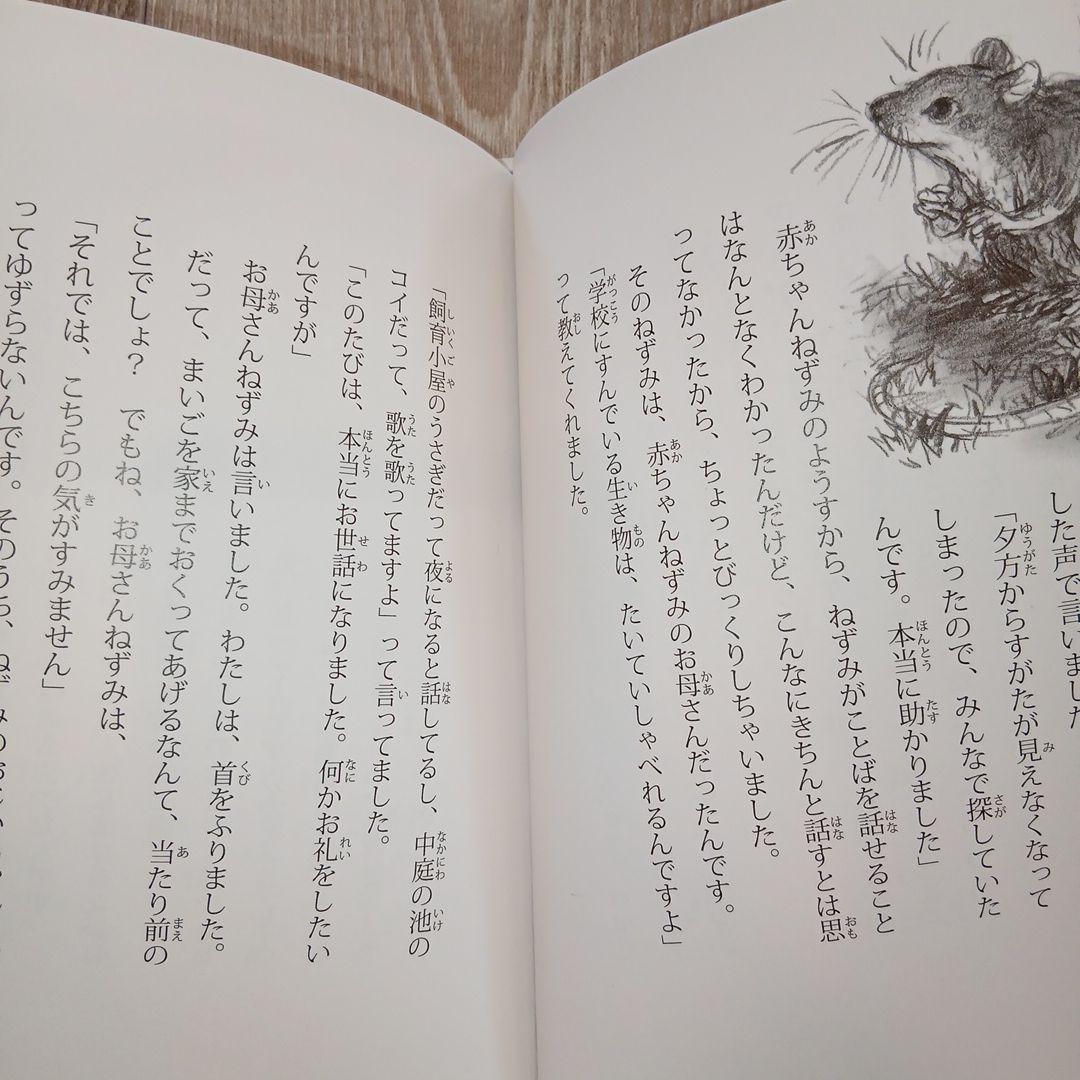 した声で言いました
「夕方からすがたが見えなくなって
しまったので、みんなで探していた
んです。本当に助かりました」
赤ちゃんねずみのようすから、ねずみがことばを話せること
はなんとなくわかったんだけど、こんなにきちんと話すとは思
ってなかったから、ちょっとびっくりしちゃいました。
そのねずみは、赤ちゃんねずみのお母さんだったんです。
「学校にすんでいる生き物は、たいていしゃべれるんですよ」
って教えてくれました。
「飼育小屋のうさぎだって夜になると話してるし、中庭の池の
コイだって、歌を歌ってますよ」って言ってました。
「このたびは、本当にお世話になりました。何かお礼をしたい
んですが」
お母さんねずみは言いました。わたしは、首をふりました。
だって、まいごを家までおくってあげるなんて、当たり前の
ことでしょ？　でもね、お母さんねずみは、
「それでは、こちらの気がすみません」
ってゆずらないんです。そのうち、ねずみのお